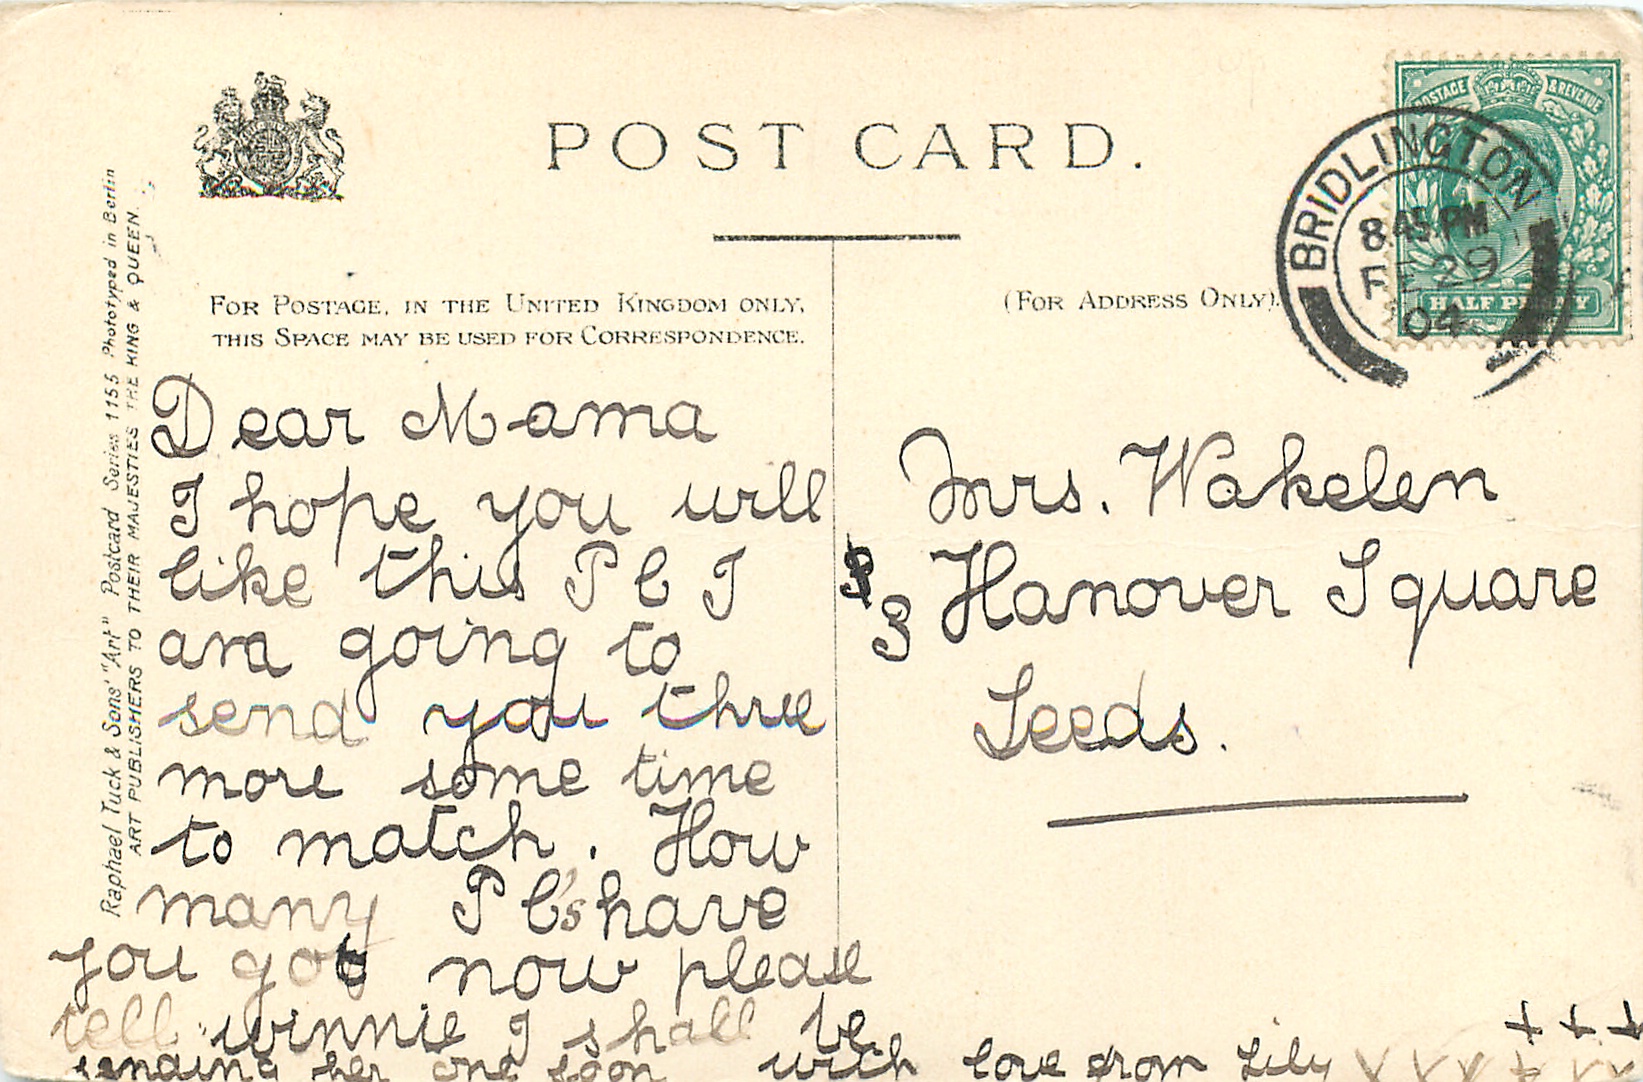 POST CARD.
FOR POSTAGE, IN THE UNITED KINGDOM ONLY,
THIS SPACE MAY BE USED FOR CORRESPONDENCE.
(FOR ADDRESS ONLY).
POSTAGE & REVENUE
HALF PENNY
BRIDLINGTON
8.45 PM
FE 29
04
Raphael Tuck & Sons' "Art" Postcard Series 1155 Phototyped in Berlin
ART PUBLISHERS TO THEIR MAJESTIES THE KING & QUEEN.
Dear Mama
I hope you will
like this P C I
am going to
send you three
more some time
to match. How
many P C's have
you got now please
tell winnie I shall be
sending her one soon with love from Lily
+ + +
Mrs. Wakelen
3 Hanover Square
Leeds.